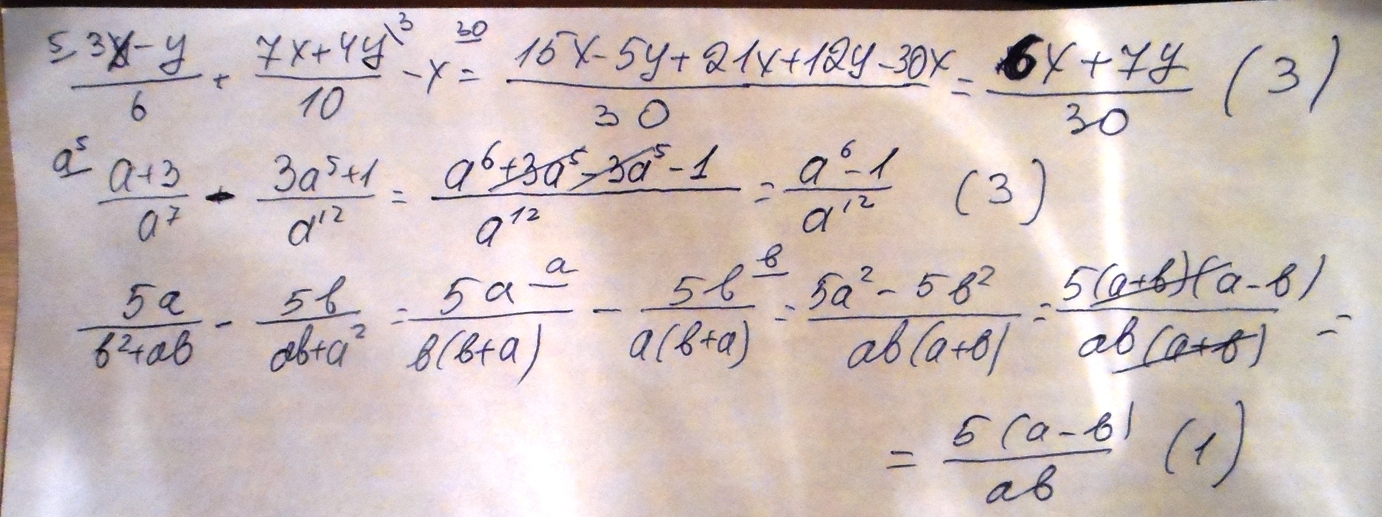 ⁵ (3x-y)/6 + (7x+4y)/10 \³ - x ³⁰ = (15x-5y+21x+12y-30x)/30 = (6x+7y)/30 (3)
a⁵ (a+3)/a⁷ - (3a⁵+1)/a¹² = (a⁶+3a⁵-3a⁵-1)/a¹² = (a⁶-1)/a¹² (3)
5a/(в²+aв) - 5в/(aв+a²) = 5a ᵃ/(в(в+a)) - 5в ᵇ/(a(в+a)) = (5a²-5в²)/(aв(a+в)) = (5(a+в)(a-в))/(aв(a+в)) =
= (5(a-в))/(aв) (1)